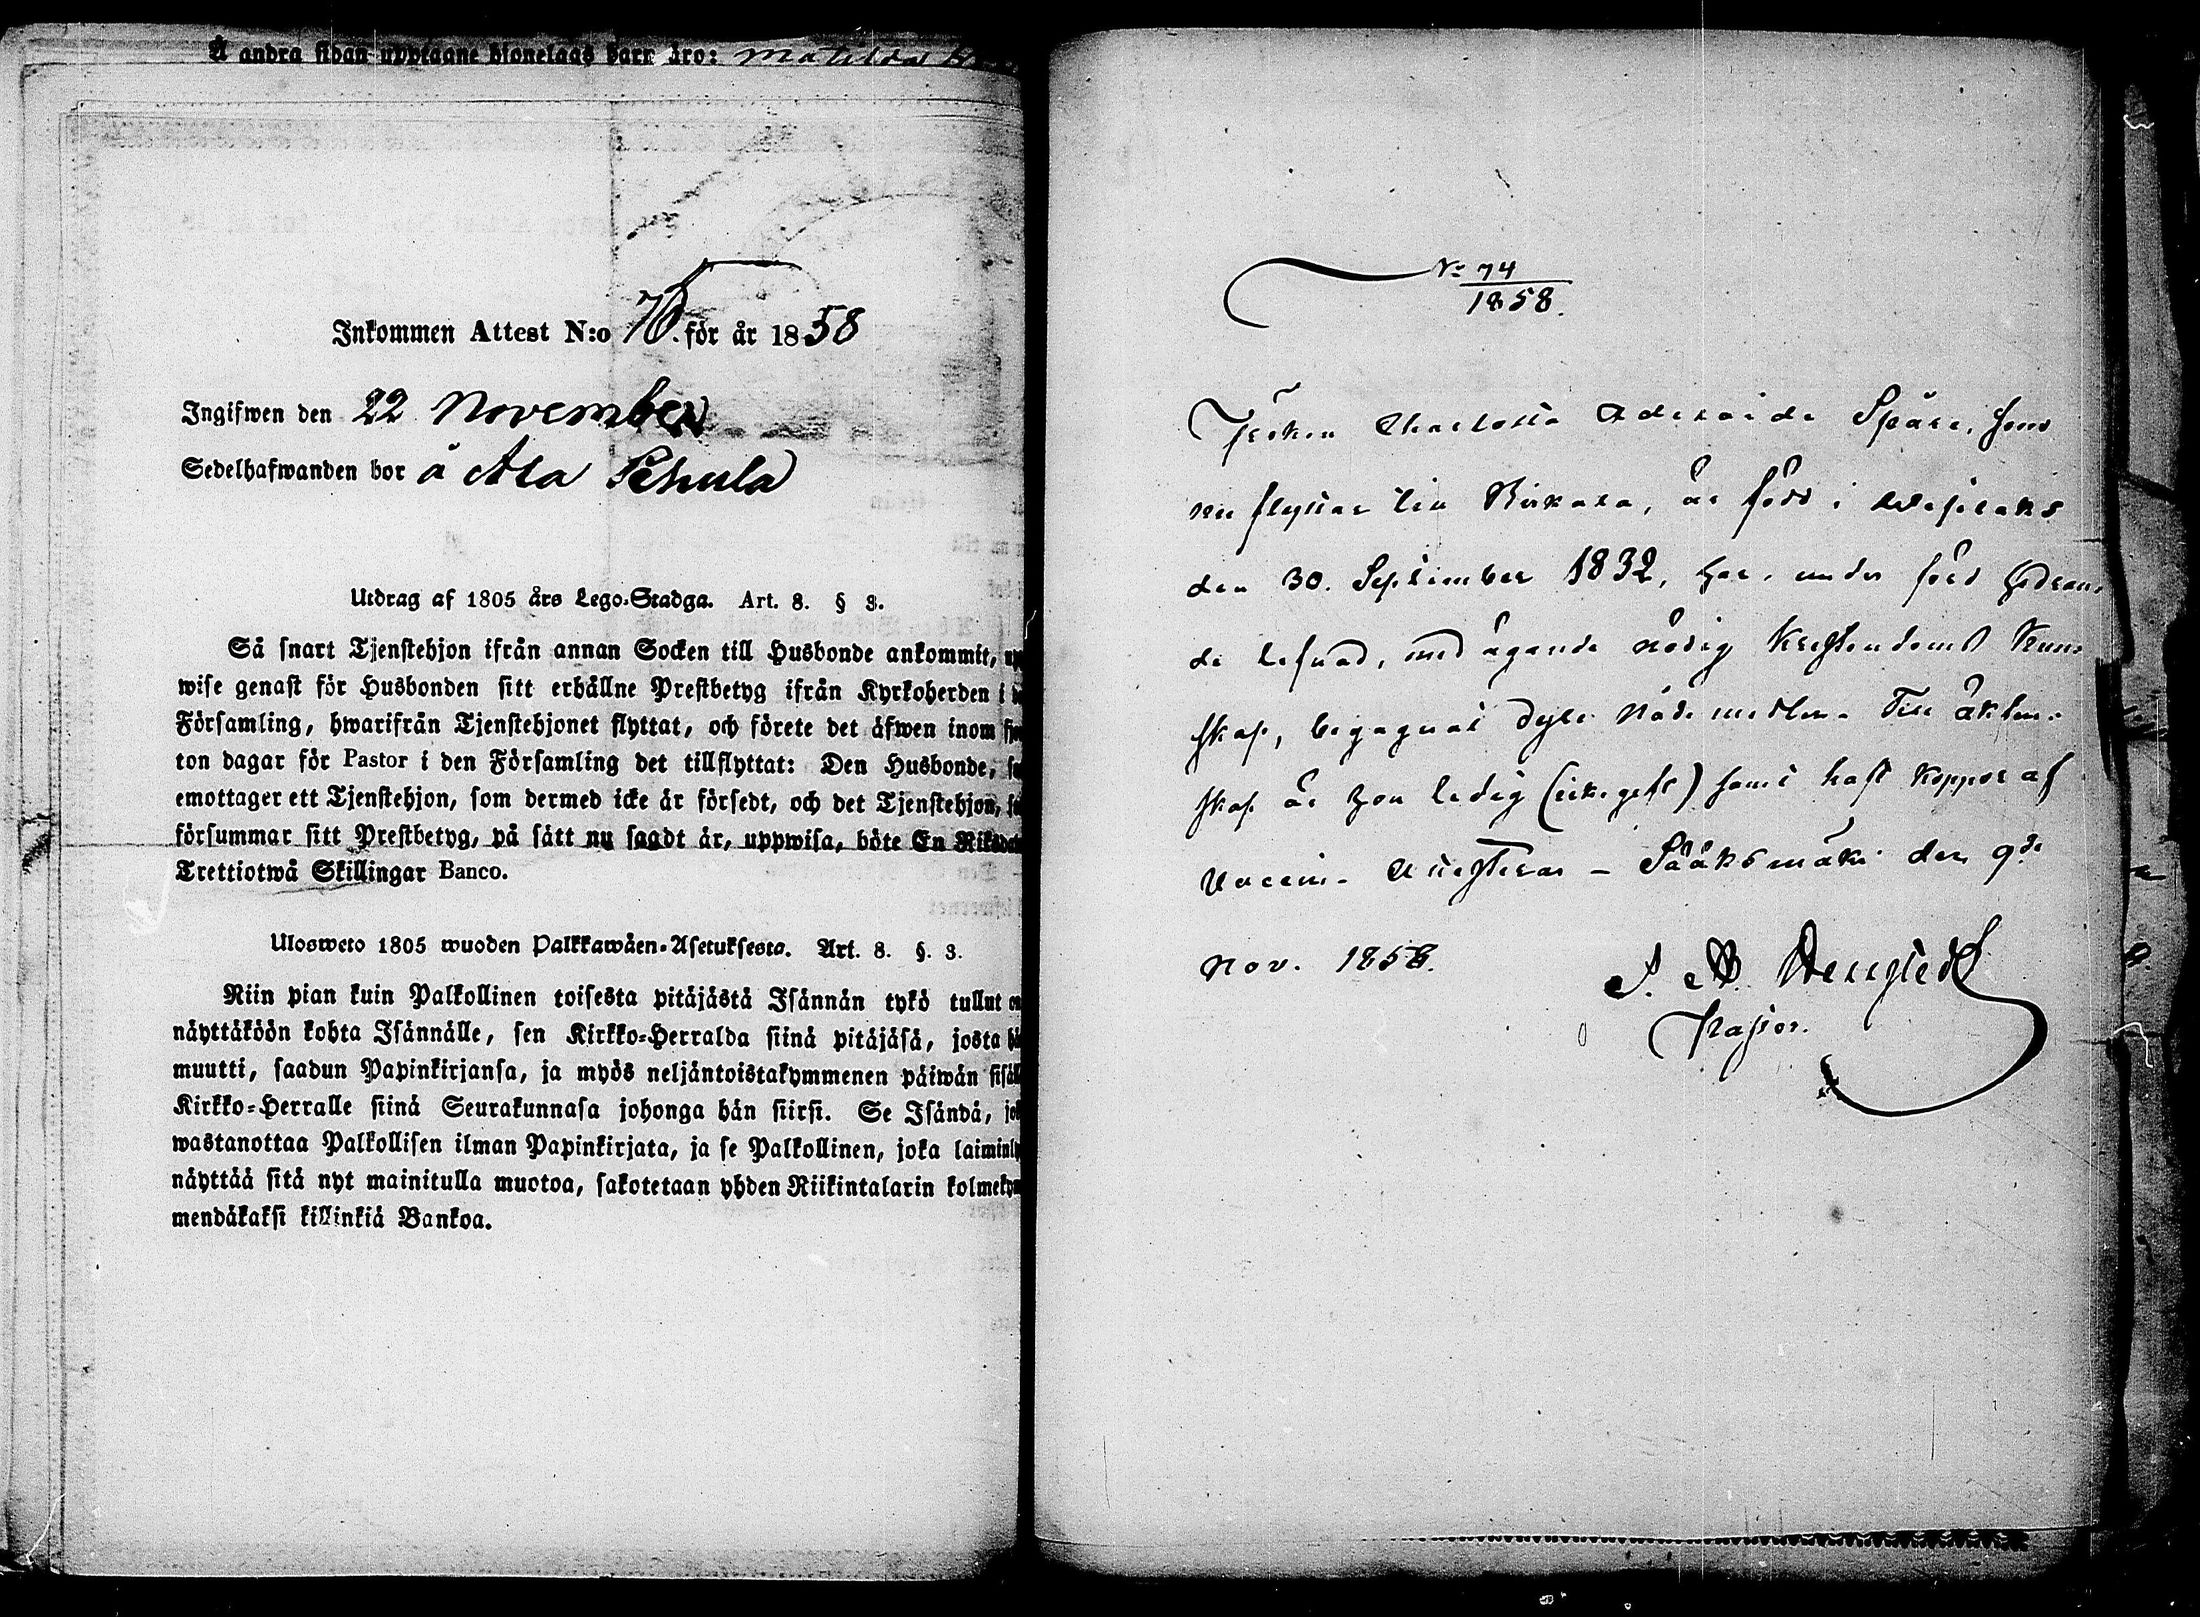 Å andra sidan upptagne hjonelags barn äro: Matilda
Inkommen Attest N:o 76. för år 1858
Ingifwen den 22 November
Sedelhafwanden bor å Ala Sehula
Utdrag af 1805 års Lego-Stadga. Art. 8. § 3.
Så snart Tjenstehjon ifrån annan Socken till Husbonde ankommit,
wise genast för Husbonden sitt erhållne Prestbetyg ifrån Kyrkoherden i
Församling, hwarifrån Tjenstehjonet flyttat, och förete det äfwen inom
ton dagar för Pastor i den Församling det tillflyttat: Den Husbonde,
emottager ett Tjenstehjon, som dermed icke är försedt, och det Tjenstehjon,
försummar sitt Prestbetyg, på sätt nu sagdt är, uppwisa, böte En
Trettiotwå Skillingar Banco.
Ulosweto 1805 wuoden Palkkawäen-Asetuksesta. Art. 8. §. 3.
Niin pian kuin Palkollinen toisesta pitäjästä Isännän tykö tullut on
näyttäköön kohta Isännälle, sen Kirkko-Herralda siinä pitäjäsä, josta
muutti, saadun Papinkirjansa, ja myös neljäntoistakymmenen päiwän
Kirkko-Herralle siinä Seurakunnasa johonga hän siirsi. Se Isändä,
wastanottaa Palkollisen ilman Papinkirjata, ja se Palkollinen, joka
näyttää sitä nyt mainitulla muotoa, sakotetaan yhden Riikintalarin
mendäkaksi killinkiä Bankoa.
No 74
1858.
Fröken Charlotta Adelaide Spåre, som
nu flyttar till Birkala, är född i
den 30. September 1832, har, under förd hedran-
de lefnad, med ägande nödig Kristendoms Kun-
skap, begagnat dyra Nådemedlen. Till äkten-
skap är hon ledig (icke gift) samt haft koppor af
Vaccin. Attesteras – Sääksmäki den 9de
Nov. 1858.
Pastor.